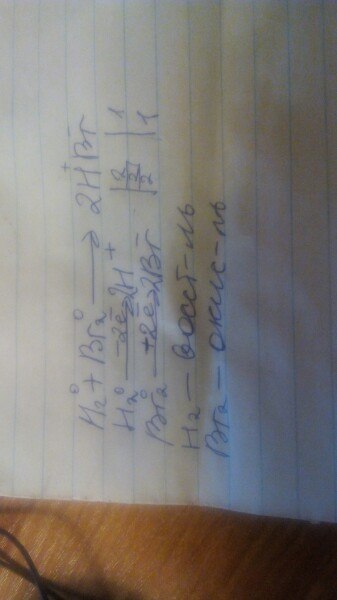 H₂⁰ + Br₂⁰ → 2H⁺Br⁻
H₂⁰ − 2e̅ → 2H⁺ | 2 | 1
Br₂⁰ + 2e̅ → 2Br⁻ | 2 | 1
H₂ — восст-ль
Br₂ — окис-ль